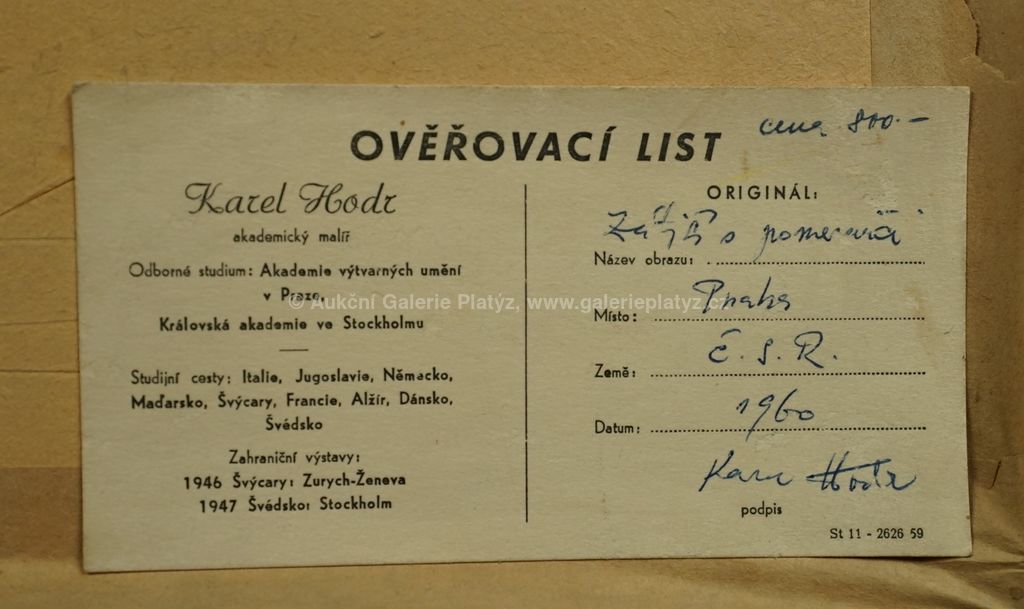 cena 800.-
OVĚŘOVACÍ LIST
Karel Hodr
akademický malíř
Odborné studium: Akademie výtvarných umění
v Praze,
Královská akademie ve Stockholmu
Studijní cesty: Italie, Jugoslavie, Německo,
Maďarsko, Švýcary, Francie, Alžír, Dánsko,
Švédsko
Zahraniční výstavy:
1946 Švýcary: Zurych-Ženeva
1947 Švédsko: Stockholm
ORIGINÁL:
Název obrazu: Zátiší s pomeranči
Místo: Praha
Země: Č. S. R.
Datum: 1960
Karel Hodr
podpis
St 11 - 2626 59
© Aukční Galerie Platýz, www.galerieplatyz.cz